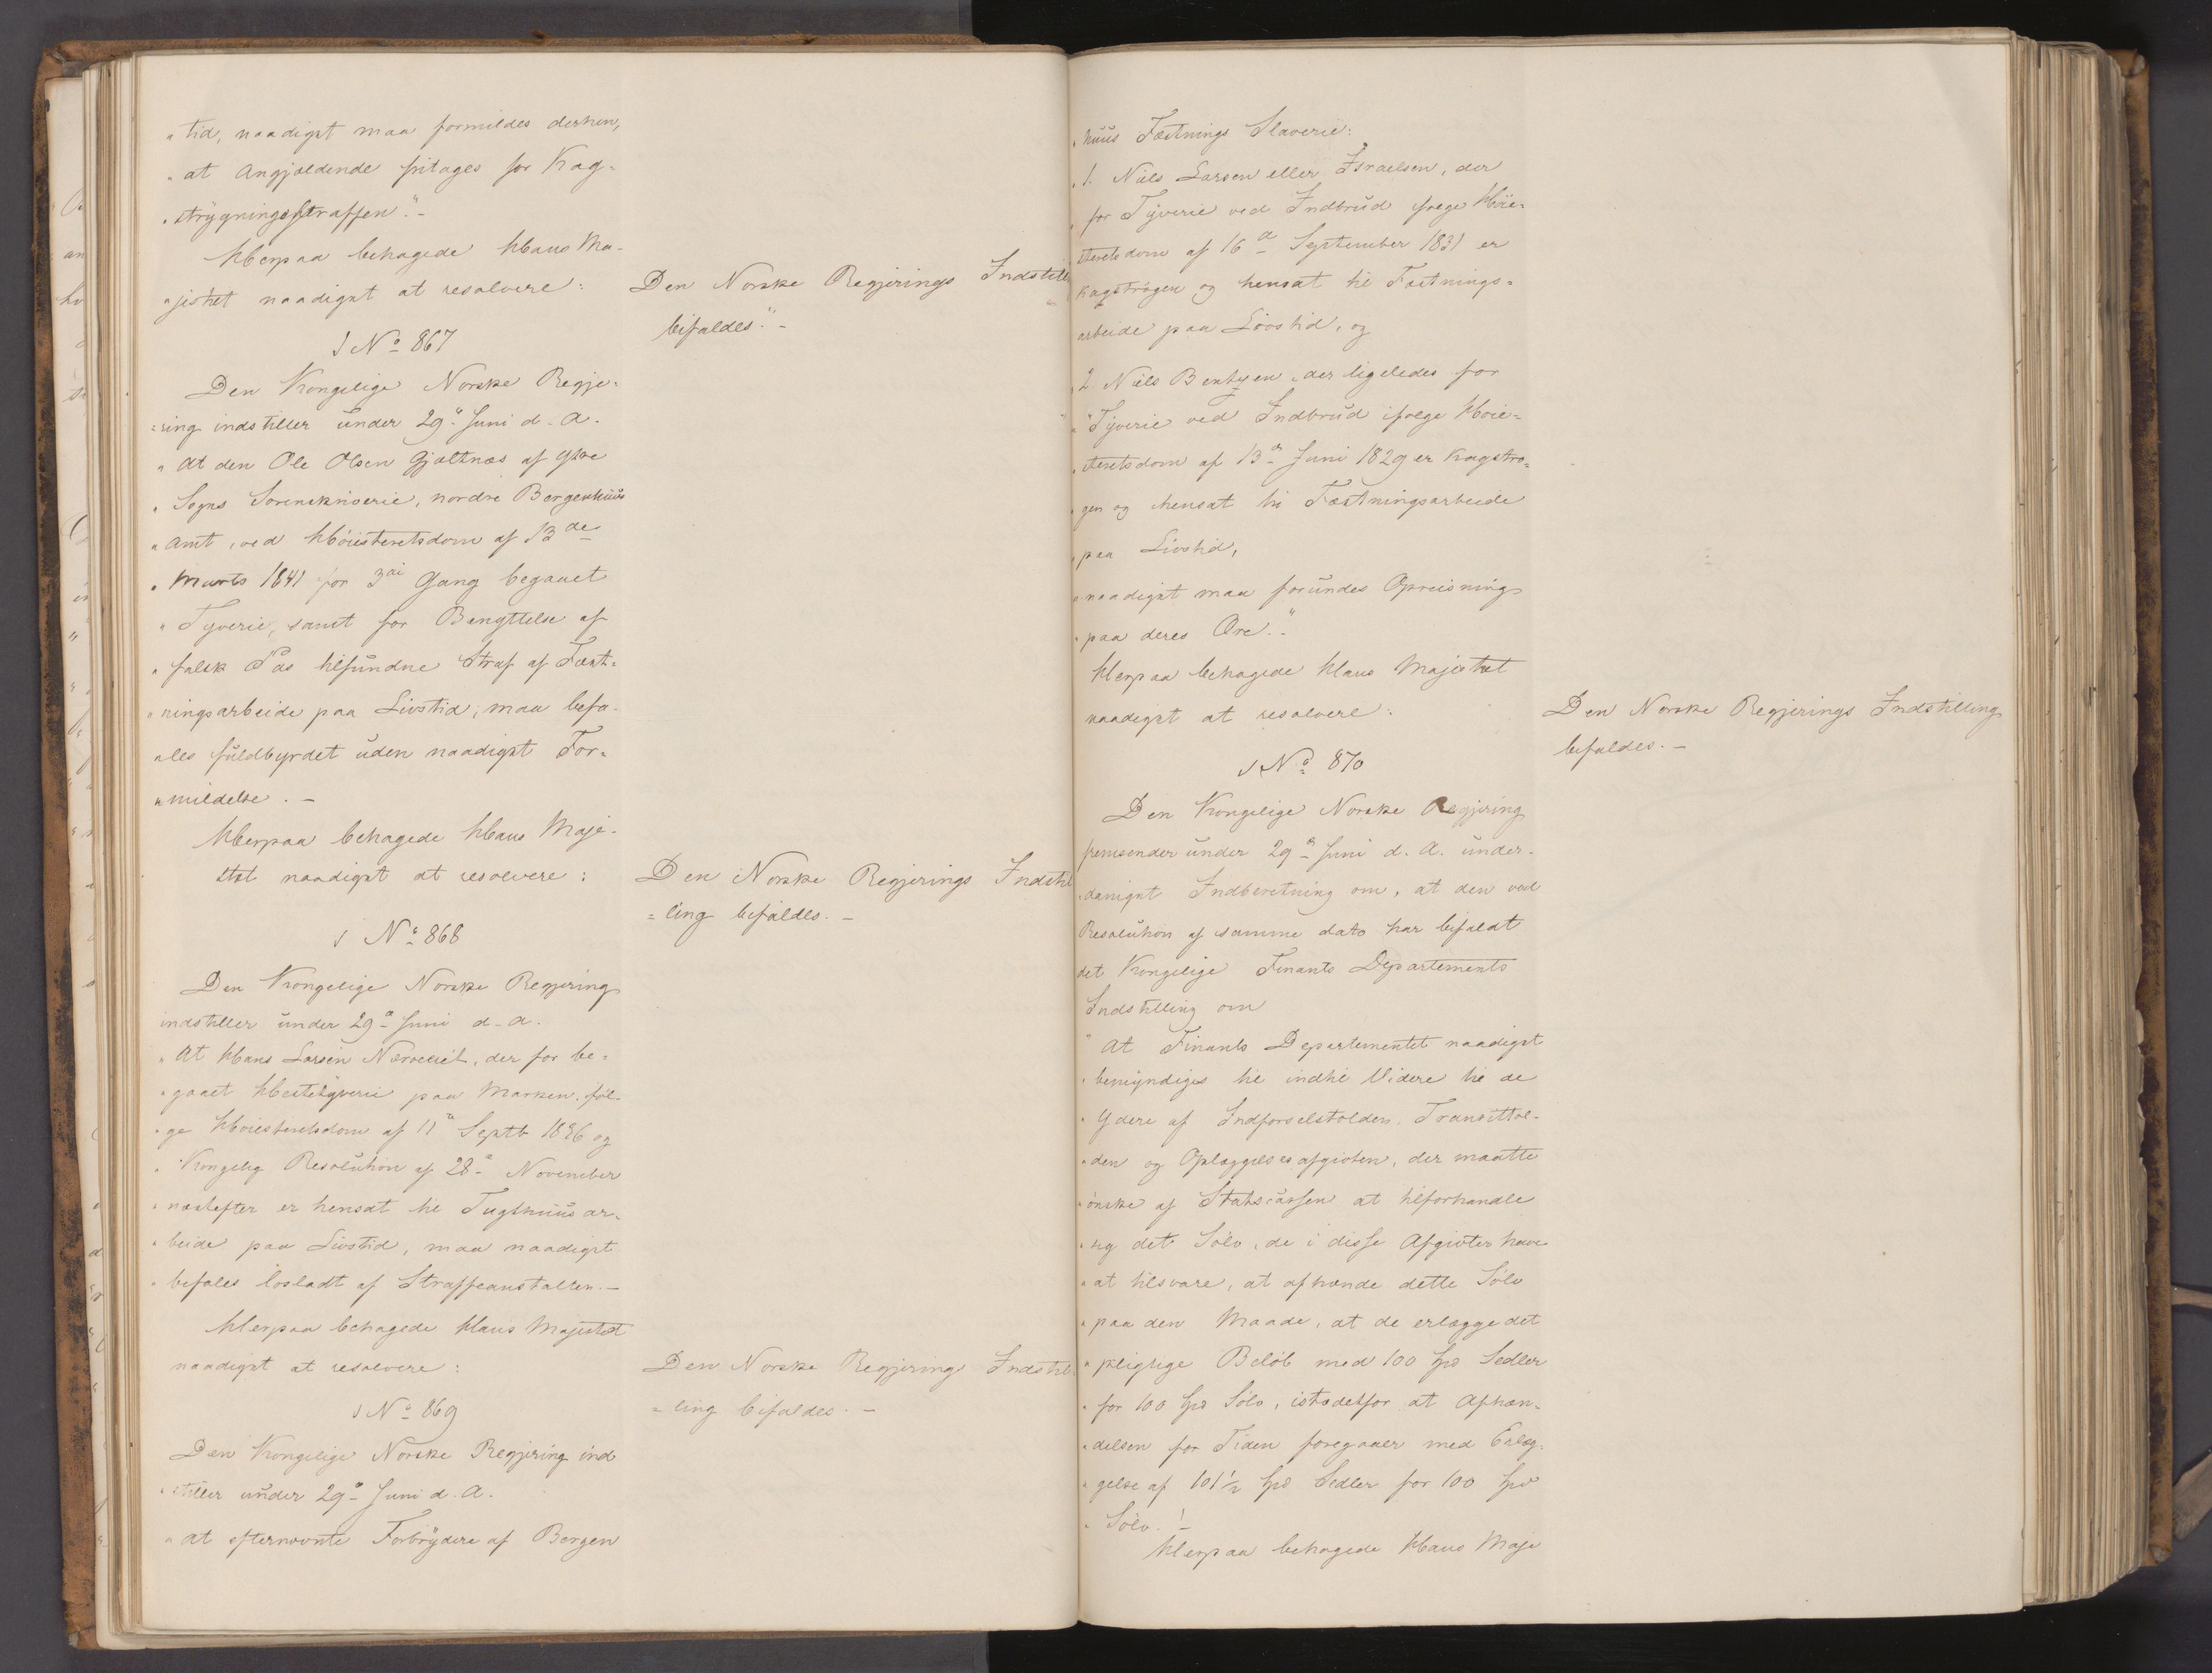 „tid, naadigst maa formildes derhen,
„at Angjældende fritages for Kag-
„strygningsstraffen."-
Herpaa behagede Hans Ma-
„jestæt naadigst at resolvere:
Den Norske Regjerings Indstill
bifaldes."-
No 867
Den Kongelige Norske Regje-
=ring indstiller under 29" Juni d. A.
„At den Ole Olsen Gjeltnæs af Ytre
„Sogns Sorenskriverie, nordre Bergenhuus
„Amt, ved Höiesteretsdom af 13de
„Marts 1841 for 3die Gang begaaet
„Tyverie, samt for Benyttelse af
„falsk Pas tilfundne Straf af Fæst-
„ningsarbeide paa Livstid, maa befa-
„les fuldbyrdet uden naadigst For-
„mildelse.-
Herpaa behagede Hans Maje-
stæt naadigst at resolvere:
Den Norske Regjerings Indstil
=ling bifaldes.-
No 868
Den Kongelige Norske Regjering
indstiller under 29de Juni d. A.
„At Hans Larsen, der for be-
„gaaet Hestetyverie paa Marken, föl-
„ge Höiesteretsdom af 11" Septb 1836 og
„Kongelig Resolution af 28de November
„næstefter er hensat til Tugthuusar-
„beide paa Livstid, maa naadigst
„befales losladt af Straffeanstalten.-
Herpaa behagede Hans Majestæt
naadigst at resolvere:
Den Norske Regjerings Indstil
=ling bifaldes.-
No 869
Den Kongelige Norske Regjering ind
„stiller under 29de Juni d. A.
„at efternævnte Forbrydere af Bergen
„huus Fæstnings Slaverie:
„1. Niels Larsen eller Israelsen, der
„for Tyverie ved Indbrud ifølge Höie-
steretsdom af 16de September 1831 er
kagströgen og hensat til Fæstnings-
arbeide paa Livstid, og
„2 Niels Bentsen, der ligeledes for
„Tyverie ved Indbrud ifølge Höie-
„steretsdom af 13de Juni 1829 er kagströ-
„gen og hensat til Fæstningsarbeide
„paa Livstid,
„naadigst maa forundes Opreisning
„paa deres Ære."
Herpaa behagede Hans Majestæt
naadigst at resolvere:
Den Norske Regjerings Indstilling
bifaldes.-
No 870
Den Kongelige Norske Regjering
fremsender under 29de Juni d. A. under-
danigst Indberetning om, at den ved
Resolution af samme dato har bifaldt
det Kongelige Finants Departements
Indstilling om
„At Finants Departementet naadigst
„bemyndiges til indtil Videre til de
„Ydere af Indforselstolden, Transittol-
„den og Oplæggelsesafgivten, der maatte
„önske af Statscassen at tilforhandle
„sig det Sölv, de i disse Afgivter have
„at tilsvare, at afhænde dette Sölv
„paa den Maade, at de erlægge det
„pligtige Belöb med 100 Spd Sedler
„for 100 Spd Sölv, istedetfor at Afhæn-
„delsen for Tiden foregaaer med Erlæg-
„gelse af 101 1/2 Spd Sedler for 100 Spd
„Sölv."-
Herpaa behagede Hans Maje